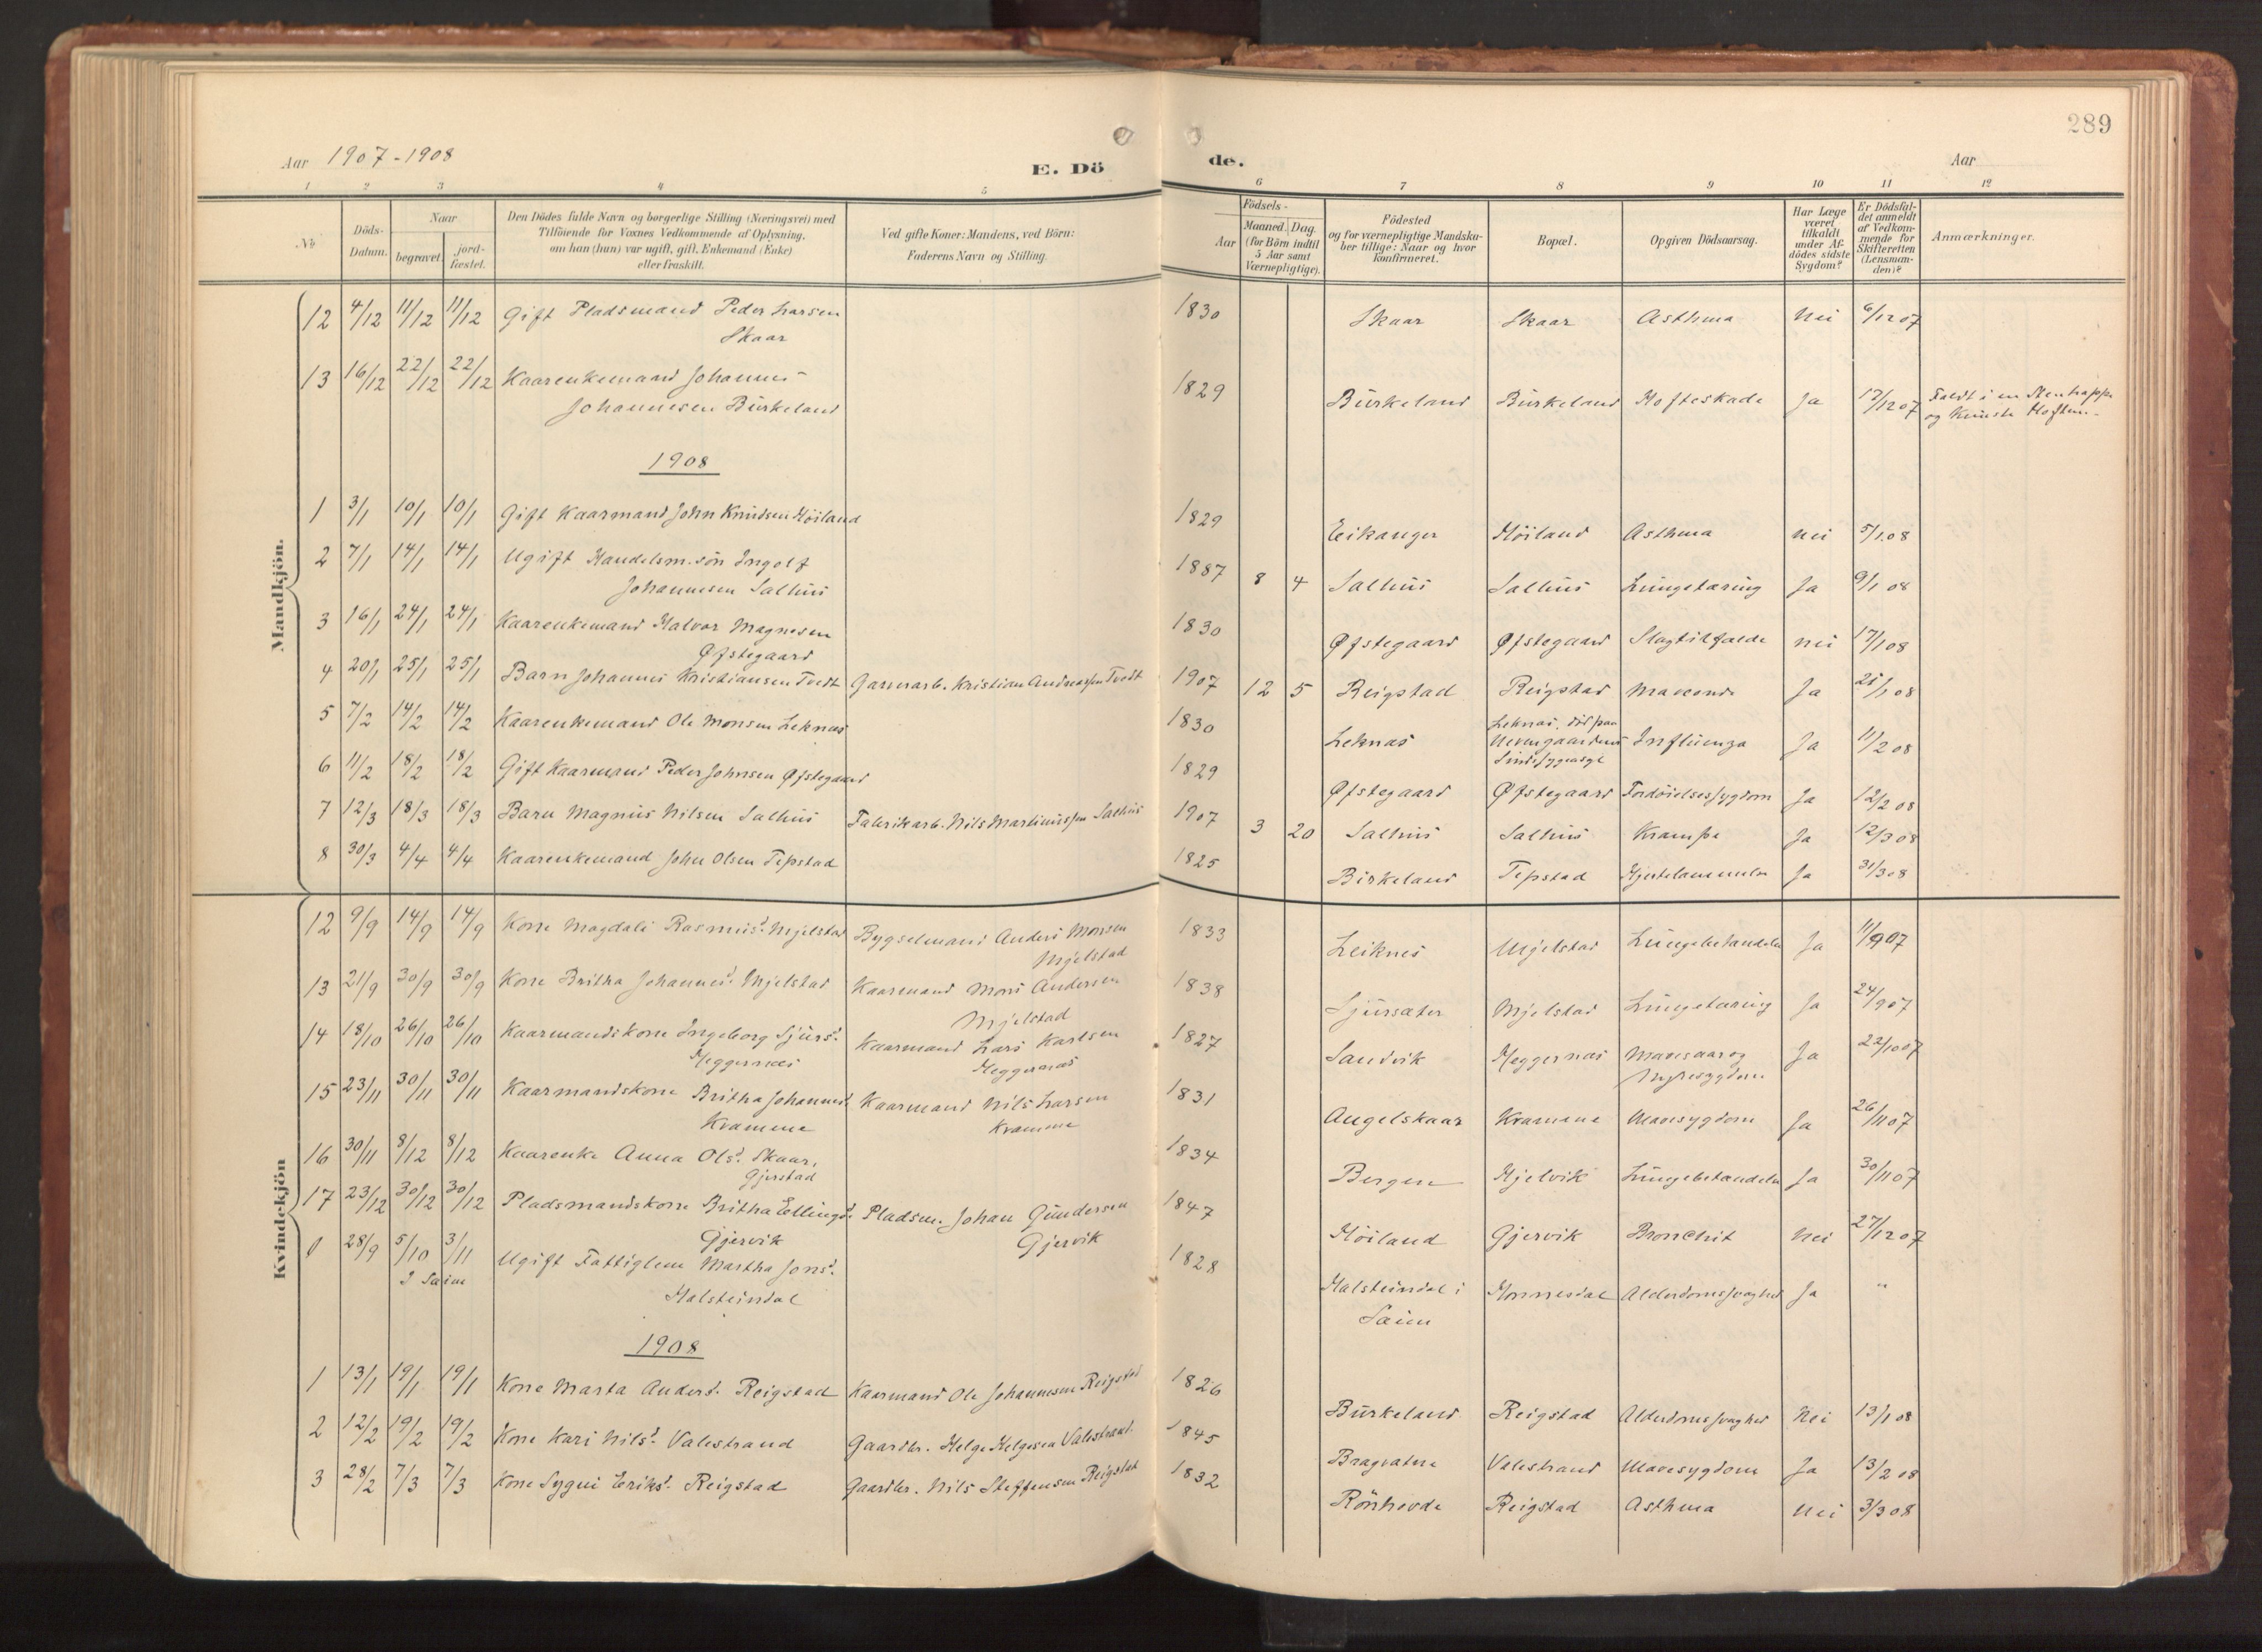 289
Aar 1907-1908
E. Dö de.
Aar
1 2 3 4 5 6 7 8 9 10 11 12
No
Döds-Datum.
Naar
begravet.
jord-fæstet.
Den Dödes fulde Navn og borgerlige Stilling (Næringsvei) med
Tilföiende for Voxnes Vedkommende af Oplysning,
om han (hun) var ugift, gift, Enkemand (Enke)
eller fraskilt.
Ved gifte Koner: Mandens, ved Börn:
Faderens Navn og Stilling.
Födsels-
Aar
Maaned. Dag.
(for Börn indtil
5 Aar samt
Værnepligtige).
Födested
og for værnepligtige Mandska-
ber tillige: Naar og hvor
konfirmeret.
Bopæl.
Opgiven Dödsaarsag.
Har Læge
været
tilkaldt
under Af-
dödes sidste
Sygdom?
Er Dödsfal-
det anmeldt
af Vedkom-
mende for
Skifteretten
(Lensman-
den)?
Anmærkninger.
Mandkjön.
12 4/12 11/12 11/12 Gift Pladsmand Peder Larsen 1830 Skaar Skaar Asthma Nei 6/12 07
Skaar
13 16/12 22/12 22/12 Kaarenkemand Johannes 1829 Burkeland Burkeland Hofteskade Ja 17/12 07 Faldt i en Stentrappe
Johannesen Burkeland og Knuste Hoften.
1908
1 3/1 10/1 10/1 Gift Kaarmand John Knudsen Höiland 1829 Eikanger Höiland Asthma nei 5/1 08
2 7/1 14/1 14/1 Ugift Handelsm. sön Ingolf 1887 8 4 Salhus Salhus Lungetæring Ja 9/1 08
Johannesen Salhus
3 16/1 24/1 24/1 Kaarenkemand Halvor Magnesen 1830 Øfstegaard Øfstegaard Slagtilfælde nei 17/1 08
Øfstegaard
4 20/1 25/1 25/1 Barn Johannes Kristiansen Tvedt Garverarb. Kristian Andreassen Tvedt 1907 12 5 Reigstad Reigstad Maveonde Ja 25/1 08
5 7/2 14/2 14/2 Kaarenkemand Ole Monsen Leknæs 1830 Leknæs Leknæs, död paa
Nevengaardens
Sindssygeasyl Influenza Ja 11/2 08
6 11/2 18/2 18/2 Gift Kaarmand Peder Johnsen Øfstegaard 1829 Øfstegaard Øfstegaard Fordöielsessygdom Ja 12/2 08
7 12/3 18/3 18/3 Barn Magnus Nilsen Salhus Fabrikarb. Nils Martinussen Salhus 1907 3 20 Salhus Salhus Krampe Ja 12/3 08
8 30/3 4/4 4/4 Kaarenkemand John Olsen Tepstad 1825 Birkeland Tepstad Hjertelammelse Ja 31/3 08
Kvindekjön
12 9/9 14/9 14/9 Kone Magdali Rasmusd. Mjelstad Bygselmand Anders Monsen 1833 Leiknes Mjelstad Lungebetændelse Ja 11/9 07
Mjelstad
13 21/9 30/9 30/9 Kone Britha Johannesd. Mjelstad Kaarmand Mons Andersen 1838 Sjursæter Mjelstad Lungetæring Ja 24/9 07
Mjelstad
14 18/10 26/10 26/10 Kaarmandskone Ingeborg Sjursd. Kaarmand Lars Karlsen 1827 Sandvik Heggernæs Mavesaar og Ja 22/10 07
Heggernæs Heggernæs Nyresygdom
15 23/11 30/11 30/11 Kaarmandskone Britha Johannesd. Kaarmand Nils Larsen 1831 Angelskaar Kramme Mavesygdom Ja 26/11 07
Kramme Kramme
16 30/11 8/12 8/12 Kaarenke Anna Olsd. Skaar, 1834 Bergen Hjelvik Lungebetændelse Ja 30/11 07
Gjerstad
17 23/12 30/12 30/12 Pladsmandskone Britha Ellingsd. Pladsm. Johan Gundersen 1847 Höiland Gjervik Bronchit Nei 27/12 07
Gjervik Gjervik
28/9 5/10 3/11 Ugift Fattiglem Martha Jonsd. 1828 Halsteindal i Monnesdal Alderdomssvaghed Ja "
I Sæim Halsteindal Sæim
1908
1 13/1 19/1 19/1 Kone Marta Andersd. Reigstad Kaarmand Ole Johannesen Reigstad 1826 Burkeland Reigstad Alderdomssvaghed Nei 13/1 08
2 12/2 19/2 19/2 Kone Kari Nilsd. Valestrand Gaardbr. Helge Helgesen Valestrand 1845 Bragvatne Valestrand Mavesygdom Ja 13/2 08
3 28/2 7/3 7/3 Kone Sygni Eriksd. Reigstad Gaardbr. Nils Steffensen Reigstad 1832 Rönhovde Reigstad Asthma Nei 3/3 08